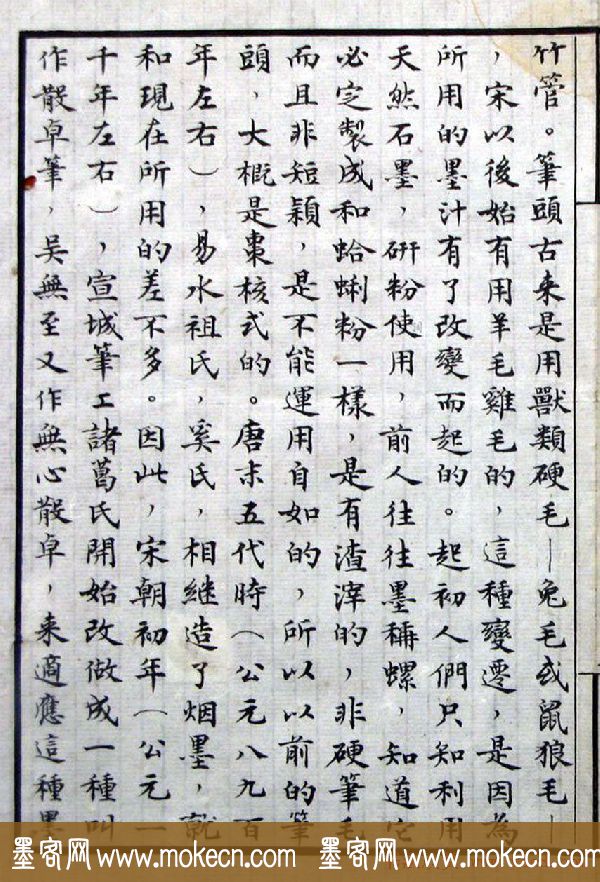 竹管。筆頭古来是用獸類硬毛—兔毛或鼠狼毛—
，宋以後始有用羊毛雞毛的，這種變遷，是因為
所用的墨汁有了改變而起的。起初人們只知利用
天然石墨，研粉使用，前人往往墨稱螺，知道它
必定製成和蛤蜊粉一樣，是有渣滓的，非硬筆毛
而且非短穎，是不能運用自如的，所以以前的筆
頭，大概是棗核式的。唐末五代時（公元八九百
年左右），易水祖氏，奚氏，相継造了烟墨，就
和現在所用的差不多。因此，宋朝初年（公元一
千年左右），宣城筆工諸葛氏開始改做成一種叫
作散卓筆，吴無至又作無心散卓，来適應這種墨
墨客网 www.mokecn.com 墨客网 www.mokecn.com